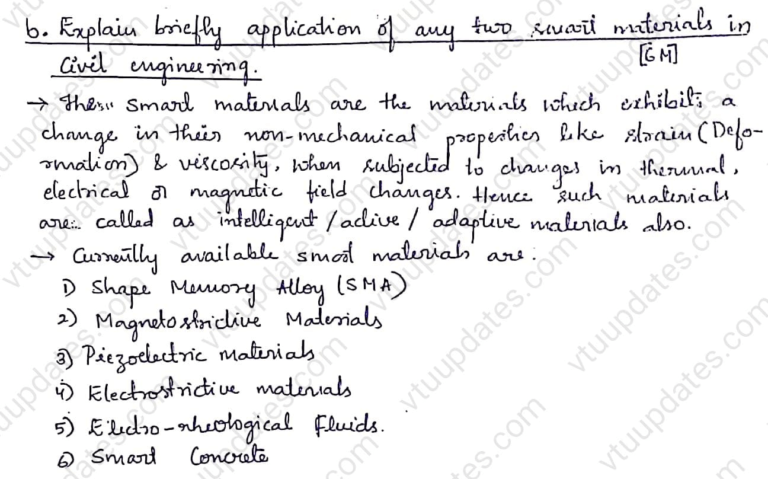 b. Explain briefly application of any two smart materials in
Civil engineering. [6M]
→ These smart materials are the materials which exhibits a
change in their non-mechanical properties like strain (Defo-
rmation) & viscosity, when subjected to changes in thermal,
electrical or magnetic field changes. Hence such materials
are called as intelligent/active/adaptive materials also.
→ Currently available smart materials are:
1) Shape Memory Alloy (SMA)
2) Magnetostrictive Materials
3) Piezoelectric materials
4) Electrostrictive materials
5) Electro-rheological Fluids.
6) Smart Concrete
vtuupdates.com